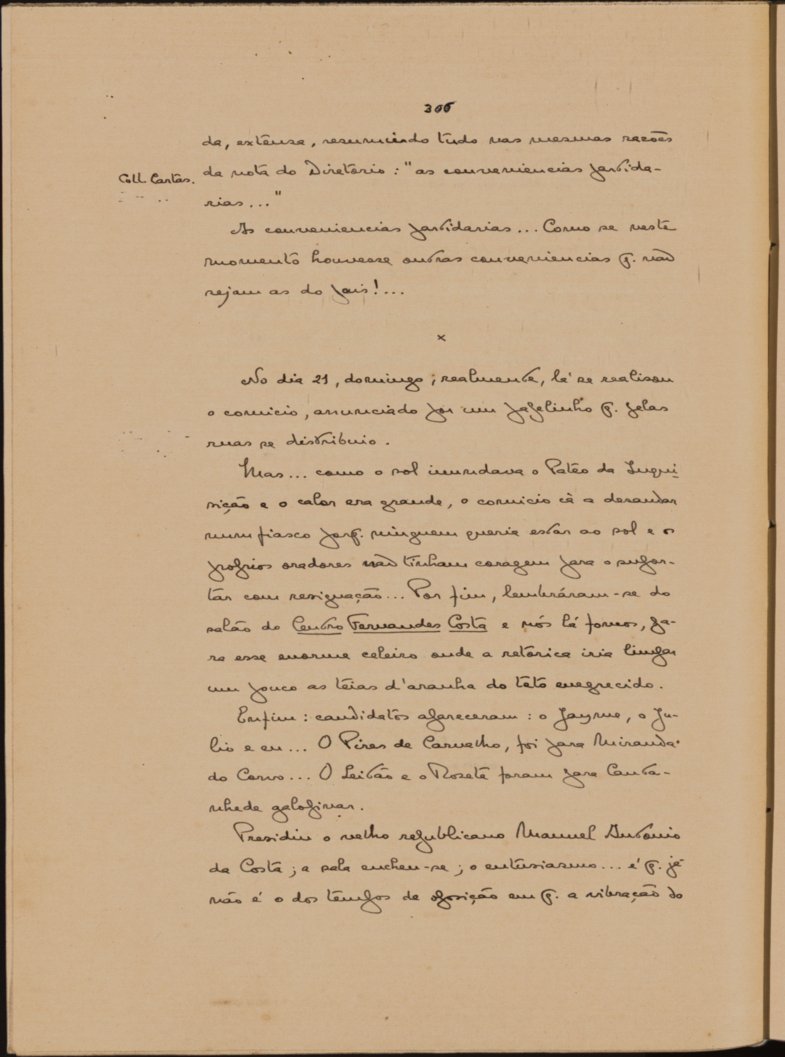 306
da, extensa, resumindo tudo nas mesmas razões
Coll. Cartas.
da nota do Diretorio: "as conveniencias partida-
rias..."
As conveniencias partidarias... Como se neste
momento houvesse outras conveniencias q. não
sejam as do país!...
x
No dia 21, domingo, realmente, lá se realisou
o comicio, anunciado por um papelinho q. pelas
ruas se distribuio.
Mas... como o sol inundava o Patêo da Inqui-
sição e o calor era grande, o comicio ia a desandar
num fiasco porq. ninguem queria estar ao sol e os
proprios oradores não tinham coragem para o supor-
tar com resignação... Por fim, lembráram-se do
salão do Centro Fernandes Costa e nós lá fomos, pa-
ra esse enorme celeiro onde a retórica iria limpar
um pouco as teias d'aranha do této enegrecido.
Enfim: candidatos apareceram: o Jayme, o Ju-
lio e eu... O Pires de Carvalho, foi para Miranda
do Corvo... O Leitão e o Rozeta foram para Canta-
nhede galopinar.
Presidiu o velho republicano Manuel Antonio
da Costa; a sala encheu-se; o entusiasmo... é q. já
não é o dos tempos de oposição em q. a vibração do